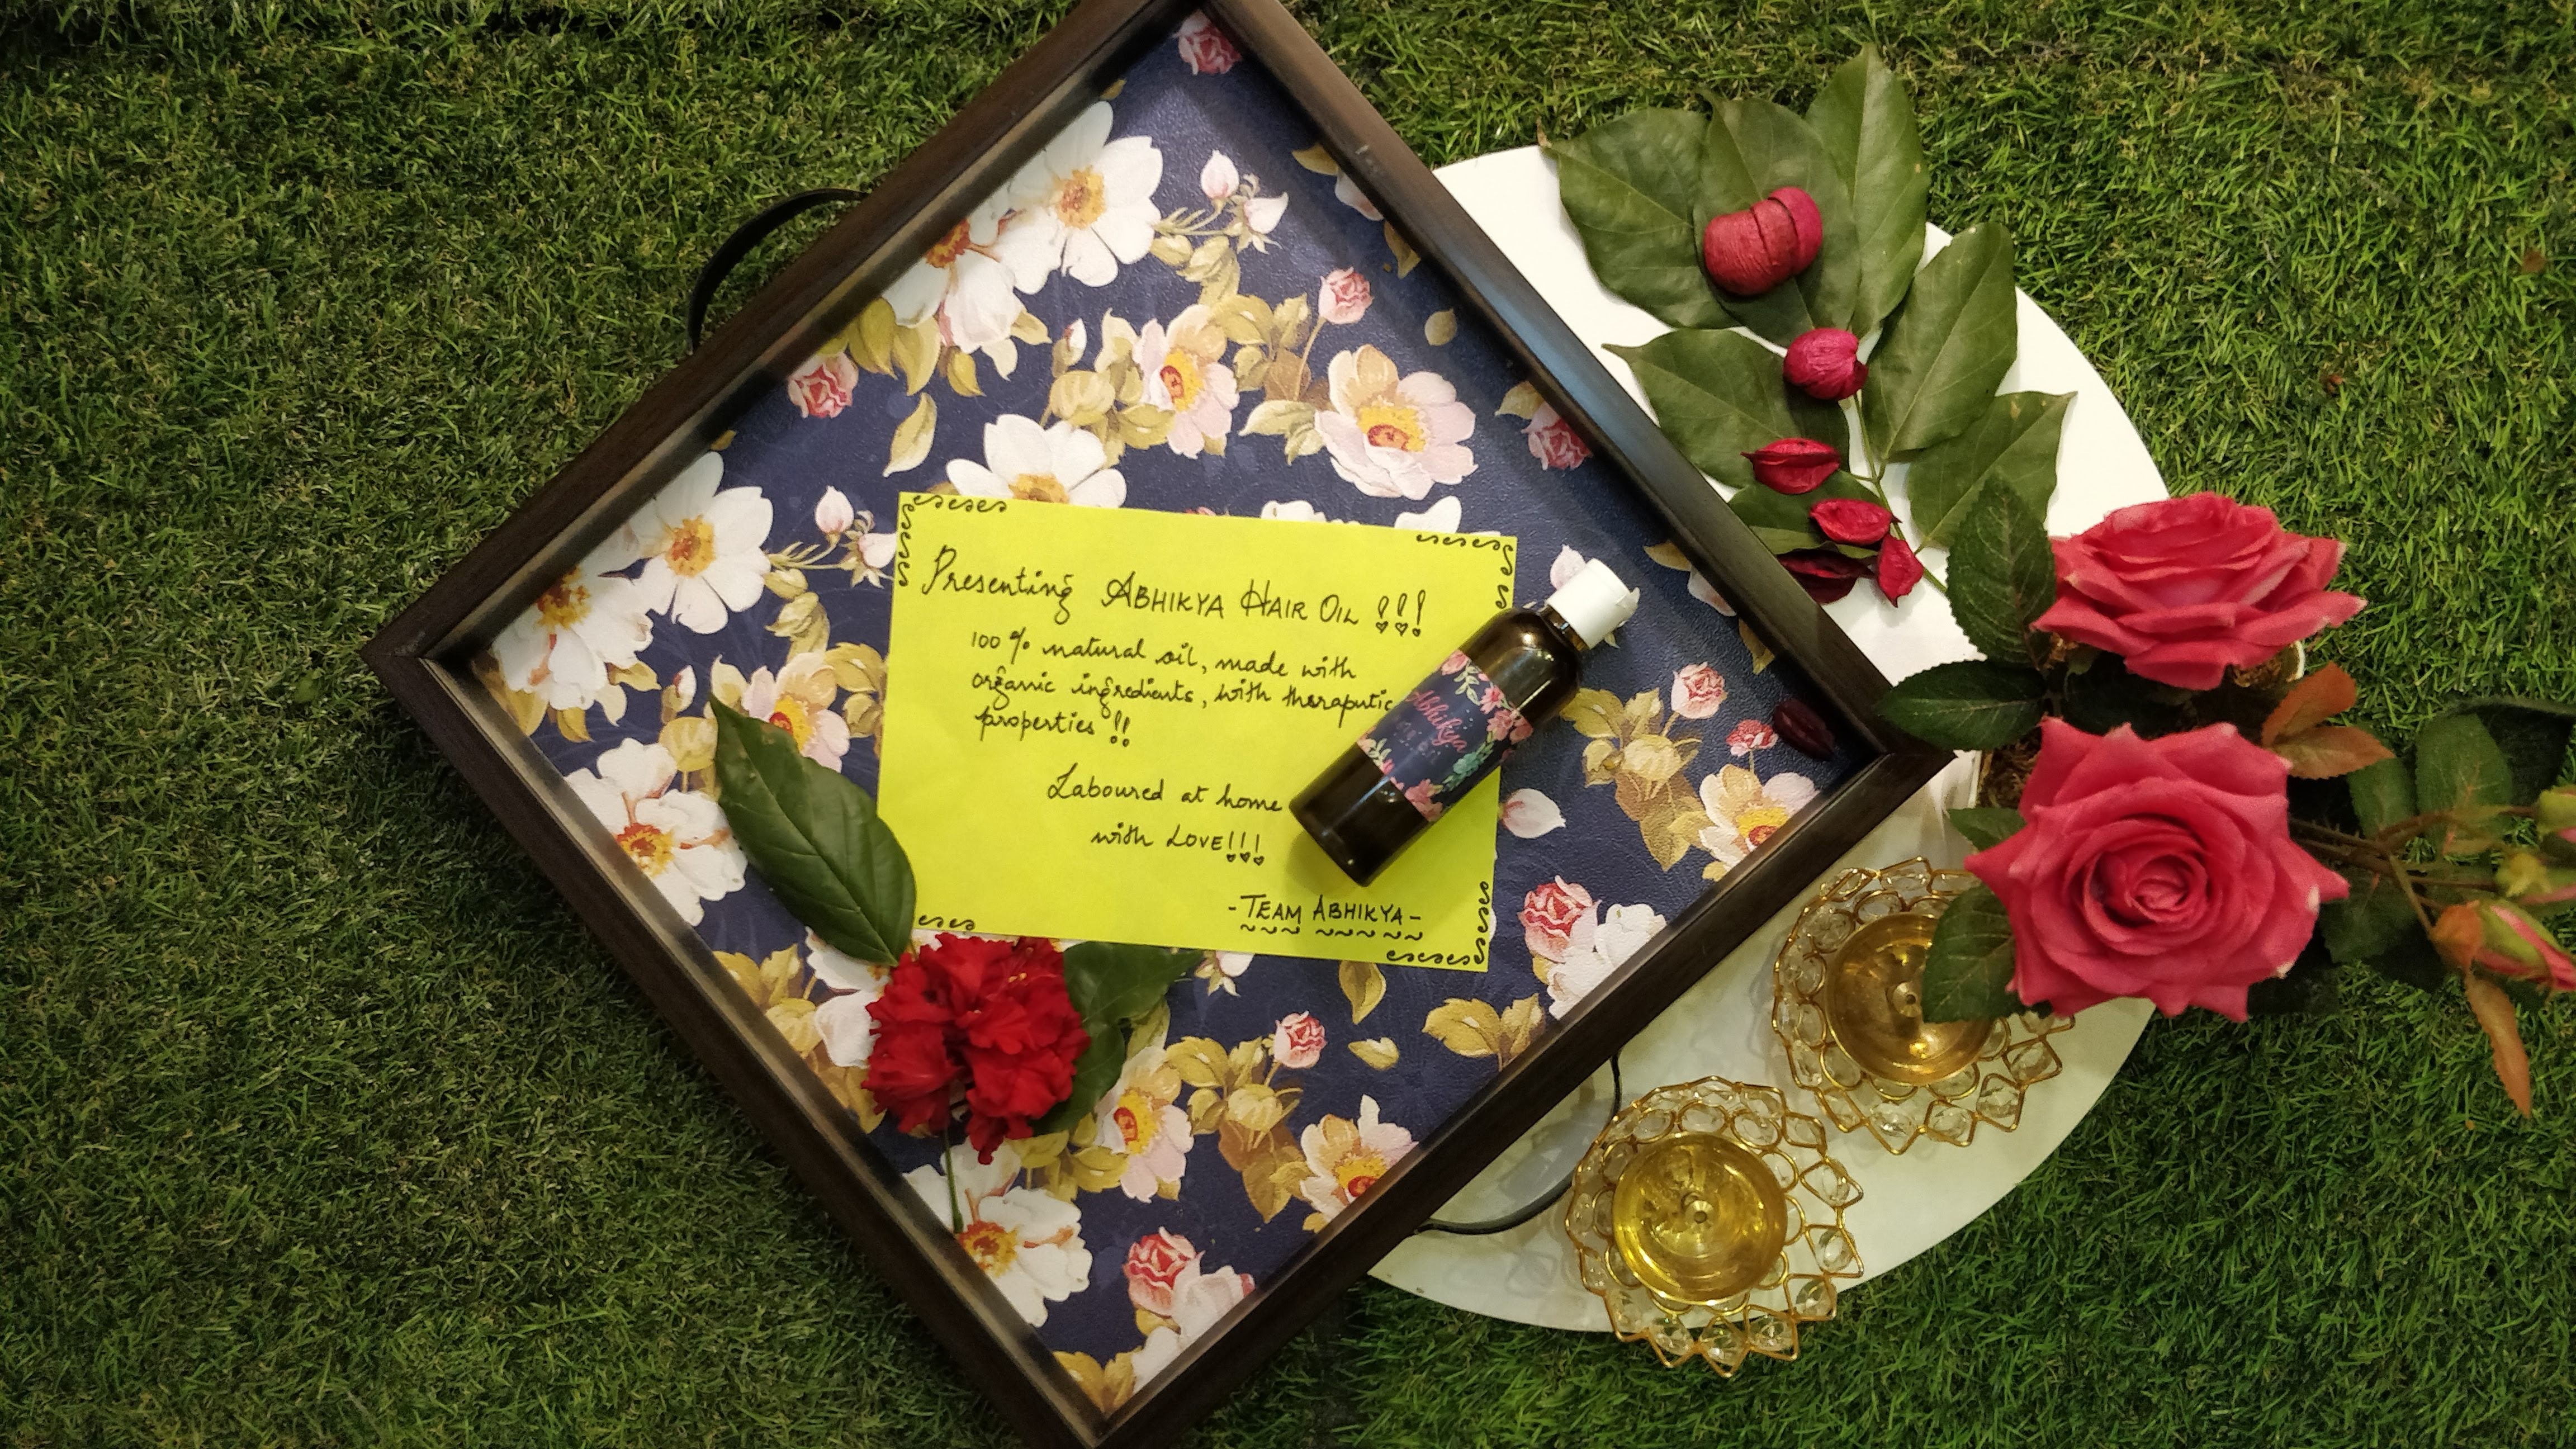 Presenting ABHIKYA HAIR OIL !!!
100% natural oil, made with
organic ingredients, with theraputic
properties !!
Laboured at home
with LOVE!!!
-TEAM ABHIKYA-
Abhikya